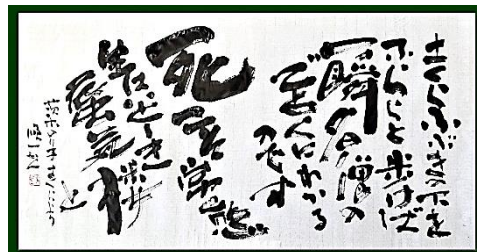 さくらふぶきの下を
ふららと歩けば
一瞬名僧の
ごとくにわかる
のです
死こそ常態
生はいとしき
蜃気楼と